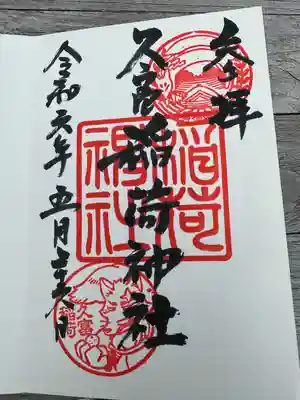 奉拝
久富稲荷神社
令和元年 五月 日
稲荷神社
久富稲荷